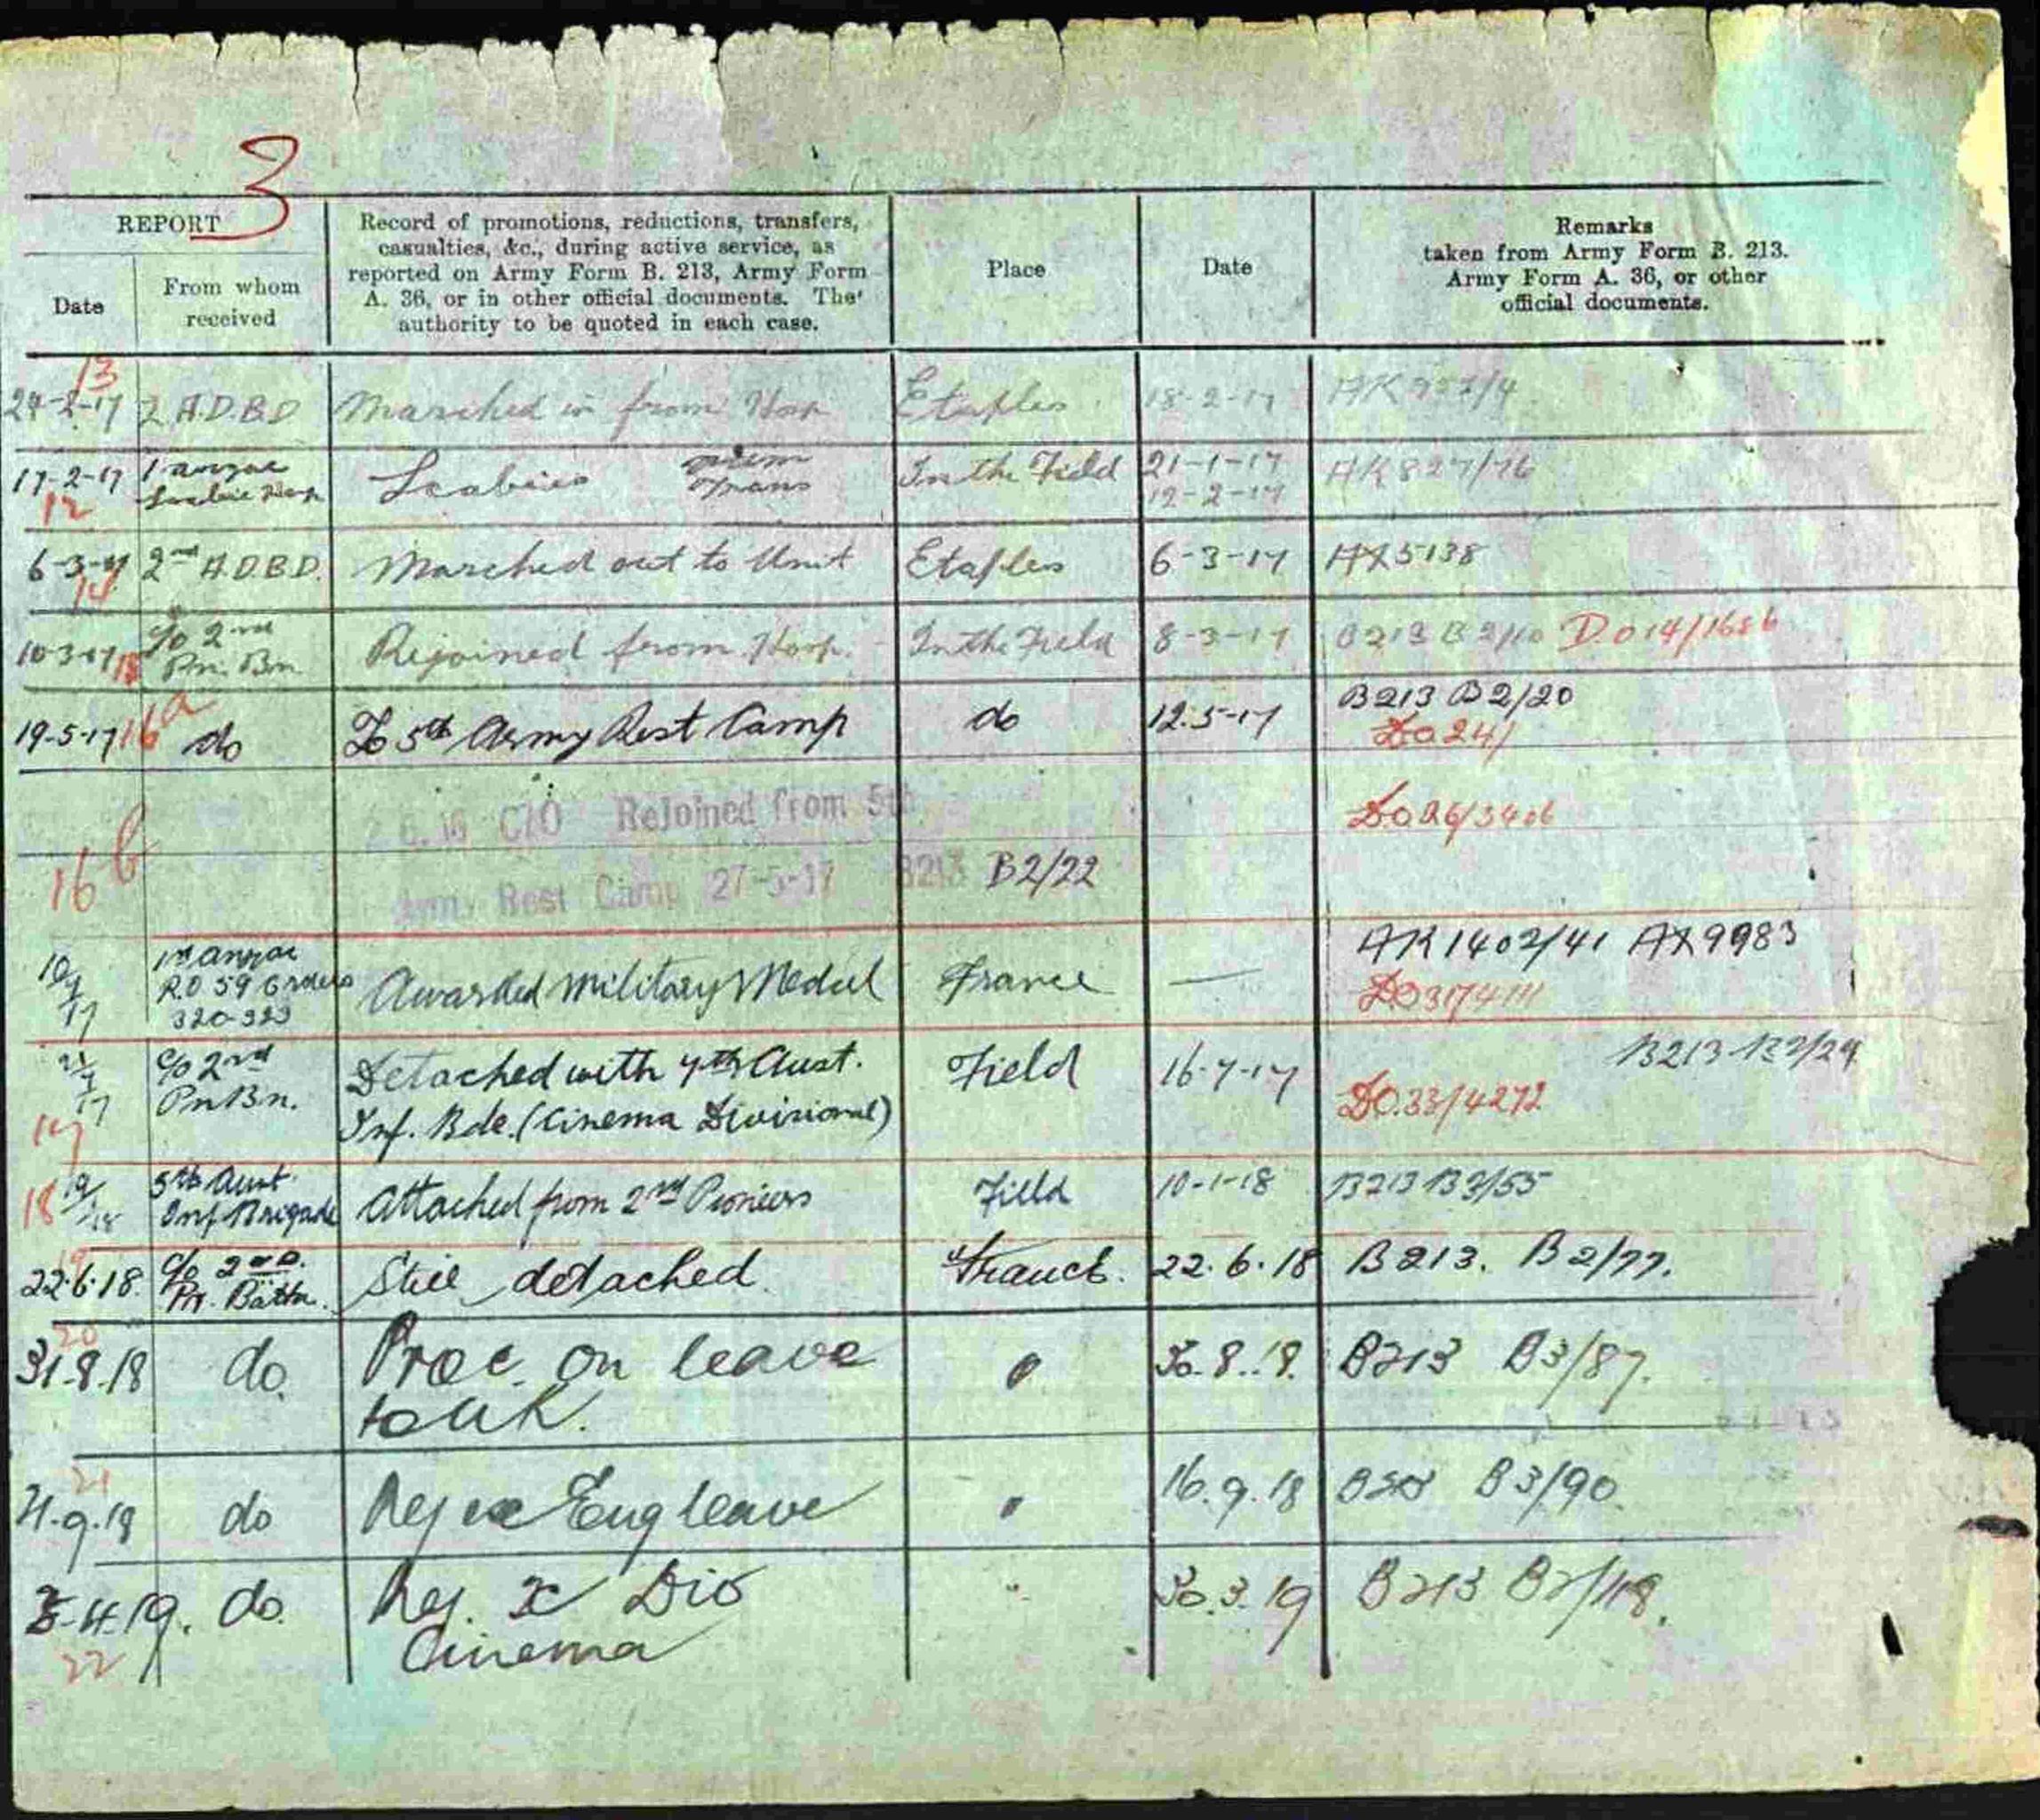 3
REPORT
Date
From whom
received
Record of promotions, reductions, transfers,
casualties, &c., during active service, as
reported on Army Form B. 213, Army Form
A. 36, or in other official documents. The
authority to be quoted in each case.
Place
Date
Remarks
taken from Army Form B. 213.
Army Form A. 36, or other
official documents.
13
2 A.D.B.D Marched in from Hosp Etaples 18-2-17
17-2-17 1 Anzac Scabies In the Field 21-1-17 AK 827/76
12 Trans 12-2-17
6-3-17 2nd A.D.B.D. Marched out to Unit Etaples 6-3-17 AX5138
14
10-3-17 c/o 2nd Rejoined from Hosp. In the Field 8-3-17 B213 DO14/1686
Pn. Bn
19-5-17 16a do To 5th Army Rest Camp do 12.5-17 B213 B2/20
DO 24/
C/O Rejoined from 5th DO26/3406
16b
Army Rest Camp 27-5-17 B213 B2/22
10/7/17 1st Anzac Awarded Military Medal France — AK1402/41 AX9983
R.O 59 Orders
320-323
21/7/17 c/o 2nd Detached with 7th Aust. Field 16-7-17 B213 B2/29
Pn Bn. Inf. Bde. (Cinema Divisional) DO.33/4272
17
18 5th Aust. Attached from 2nd Pioneers Field 10-1-18 B213 B3/55
Inf Brigade
19
22.6.18 c/o 2nd Still detached. France. 22.6.18 B213. B2/77.
Pn. Battn.
20
31.8.18 do. Proc. on leave 30.8.18. B213 B3/87.
to UK.
21
do Rej ex Eng leave 16.9.18 B3/90.
do. Rej. X Div 30.3.19 B213 B2/118.
Cinema
22